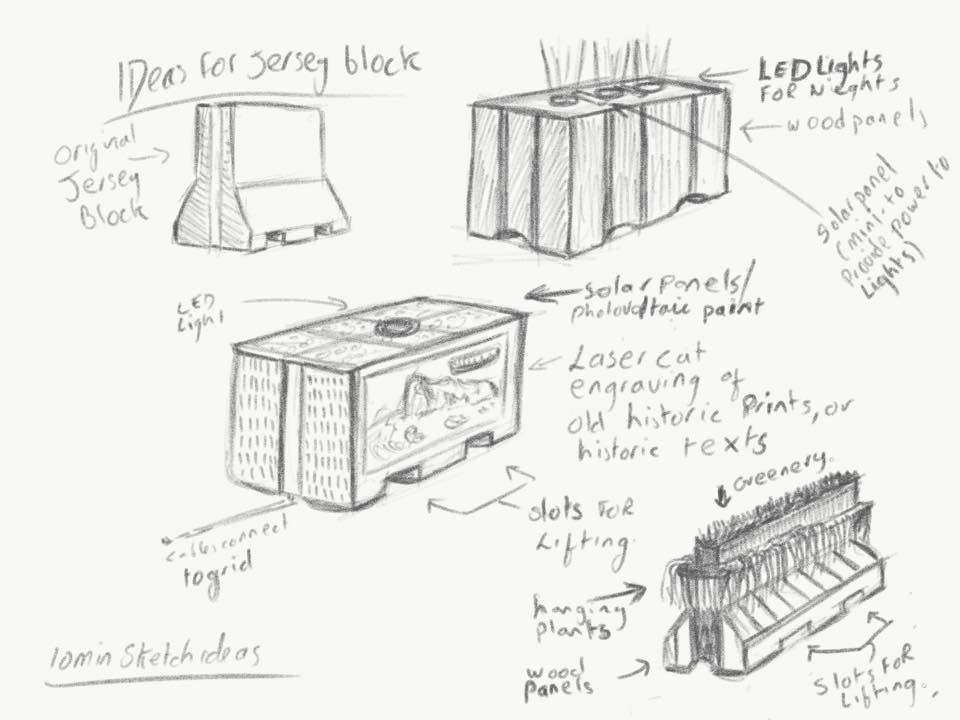 IDeas For Jersey block
Original
Jersey
Block
LED Lights
FOR Nieghts
wood panels
Solar panel
(mini- to
Provide power to
Lights)
LED
Light
Solar Panels/
photovoltaic paint
Laser cut
engraving of
old historic Prints, or
historic texts
Greenery.
slots FOR
Lifting.
cables connect
to grid
hanging
plants
wood
Panels
Slots FoR
Lifting.
10min Sketch ideas